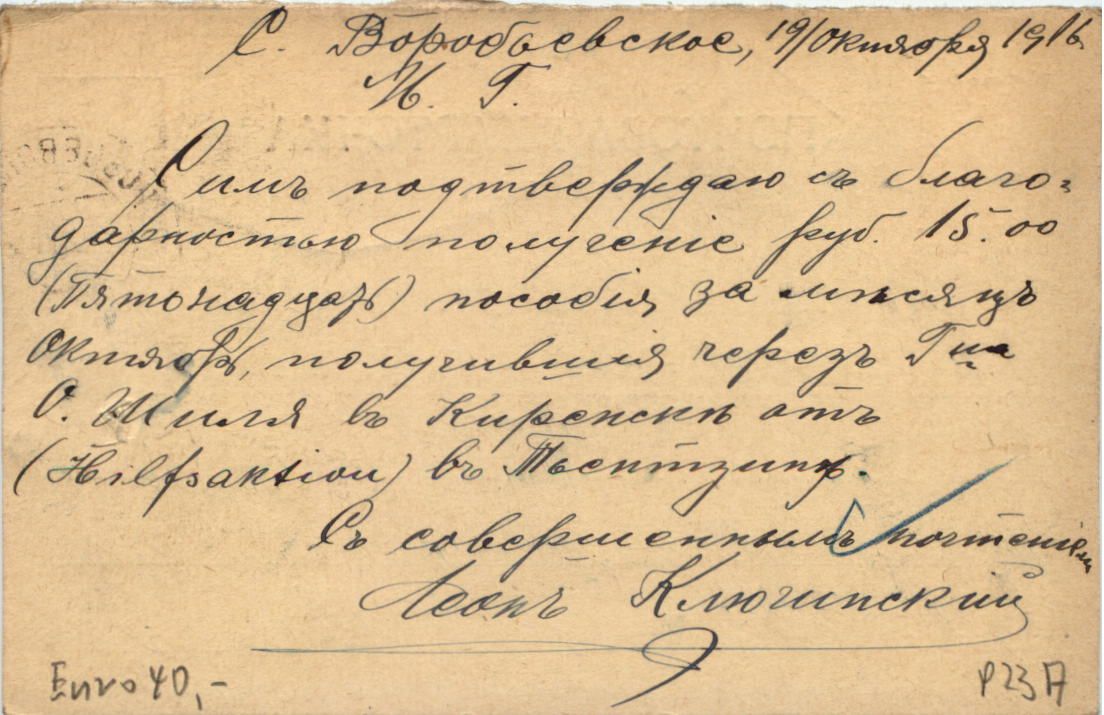 С. Воробьевское, 19/Октября 1916
М. Г.
Симъ подтверждаю съ благо=
дарностью полученіе руб. 15.00
(Пятонадцать) пособія за мѣсяцъ
Октябрь, получившія черезъ Гна
О. Шиля въ Киренскѣ отъ
(Hilfsaktion) въ Тьентзинѣ.
Съ совершеннымъ почтеніем
Леонъ Ключинскій
Euro 40,-
P23A